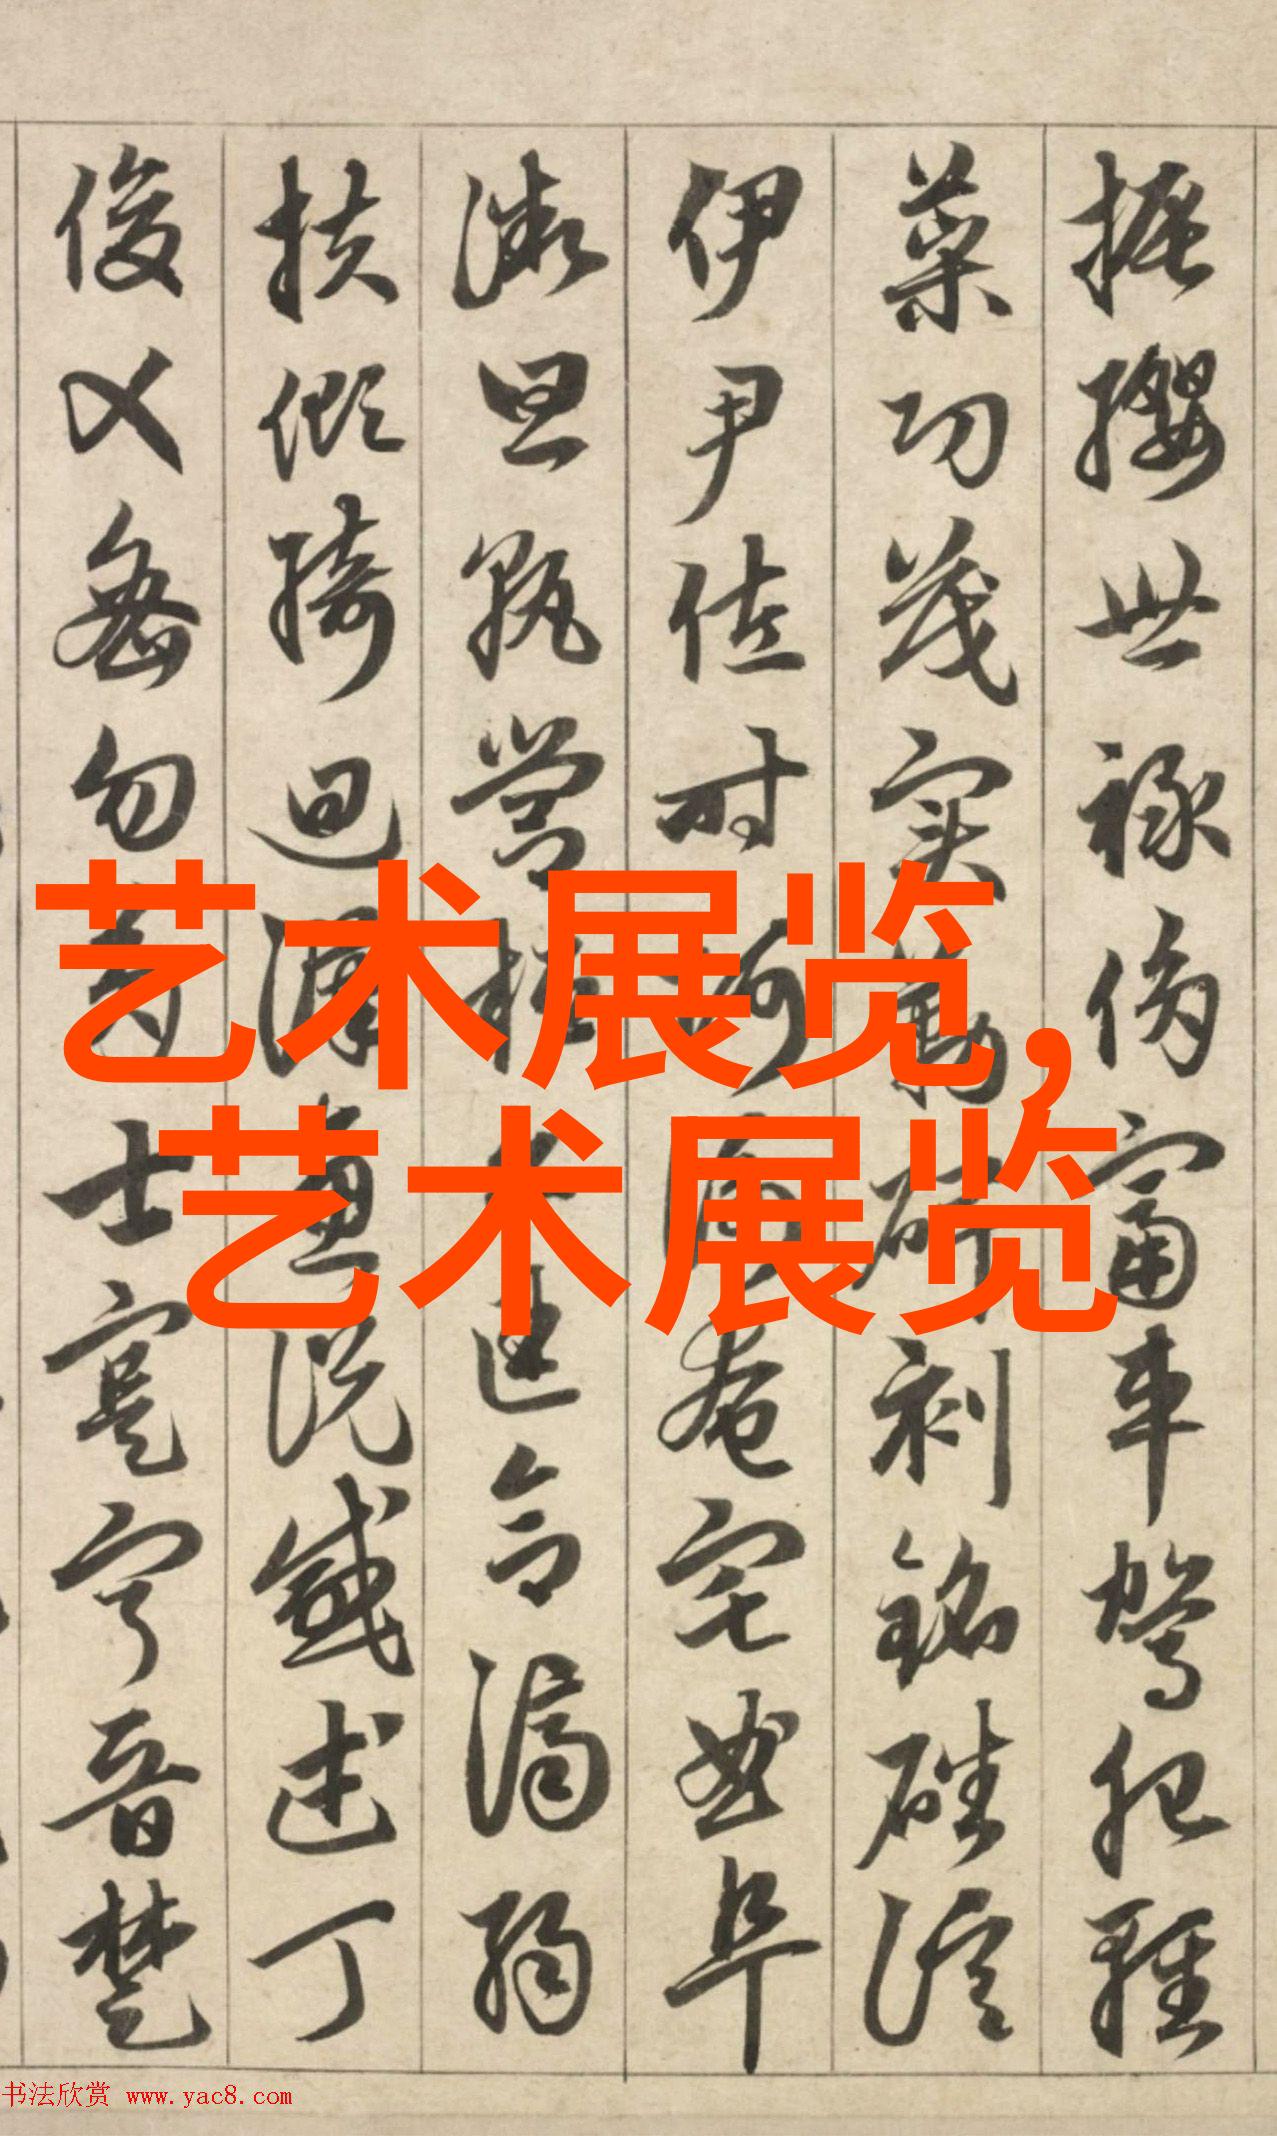 振纓世祿侈富車駕肥輕
策功茂實勒碑刻銘磻溪
伊尹佐時阿衡奄宅曲阜
微旦孰營桓公匡合濟弱
扶傾綺迴漢惠說感武丁
俊乂密勿多士寔寧晉楚
艺术展览,
艺术展览
书法欣赏 www.yac8.com